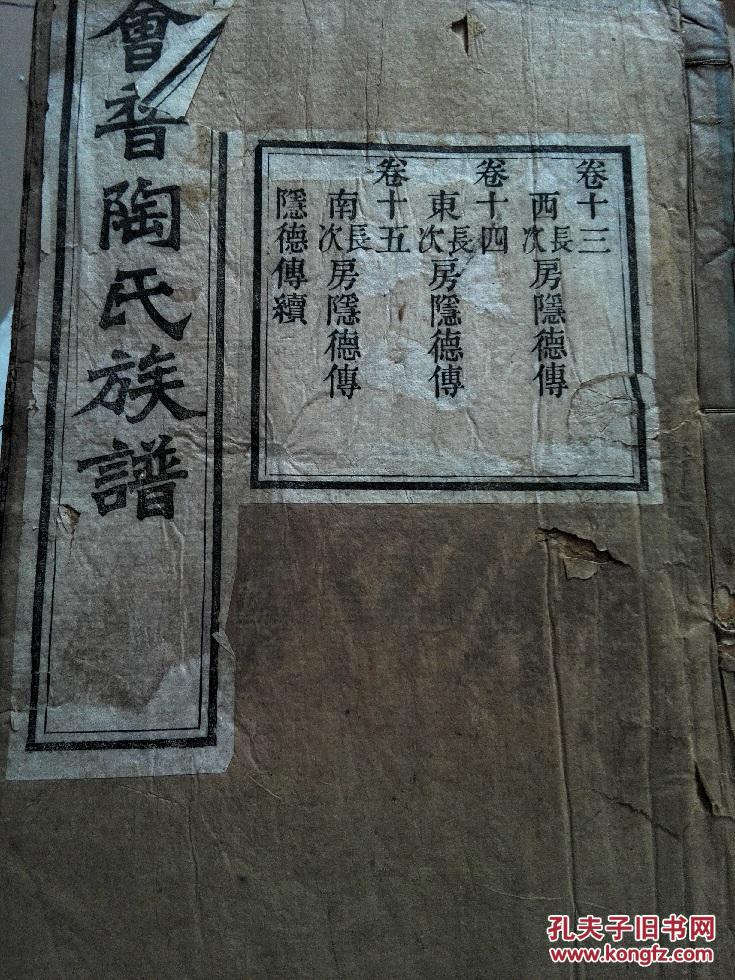 卷十三
西長次房隱德傳
卷十四
東長次房隱德傳
卷十五
南長次房隱德傳
隱德傳續
會陶氏族譜
孔夫子旧书网
www.kongfz.com